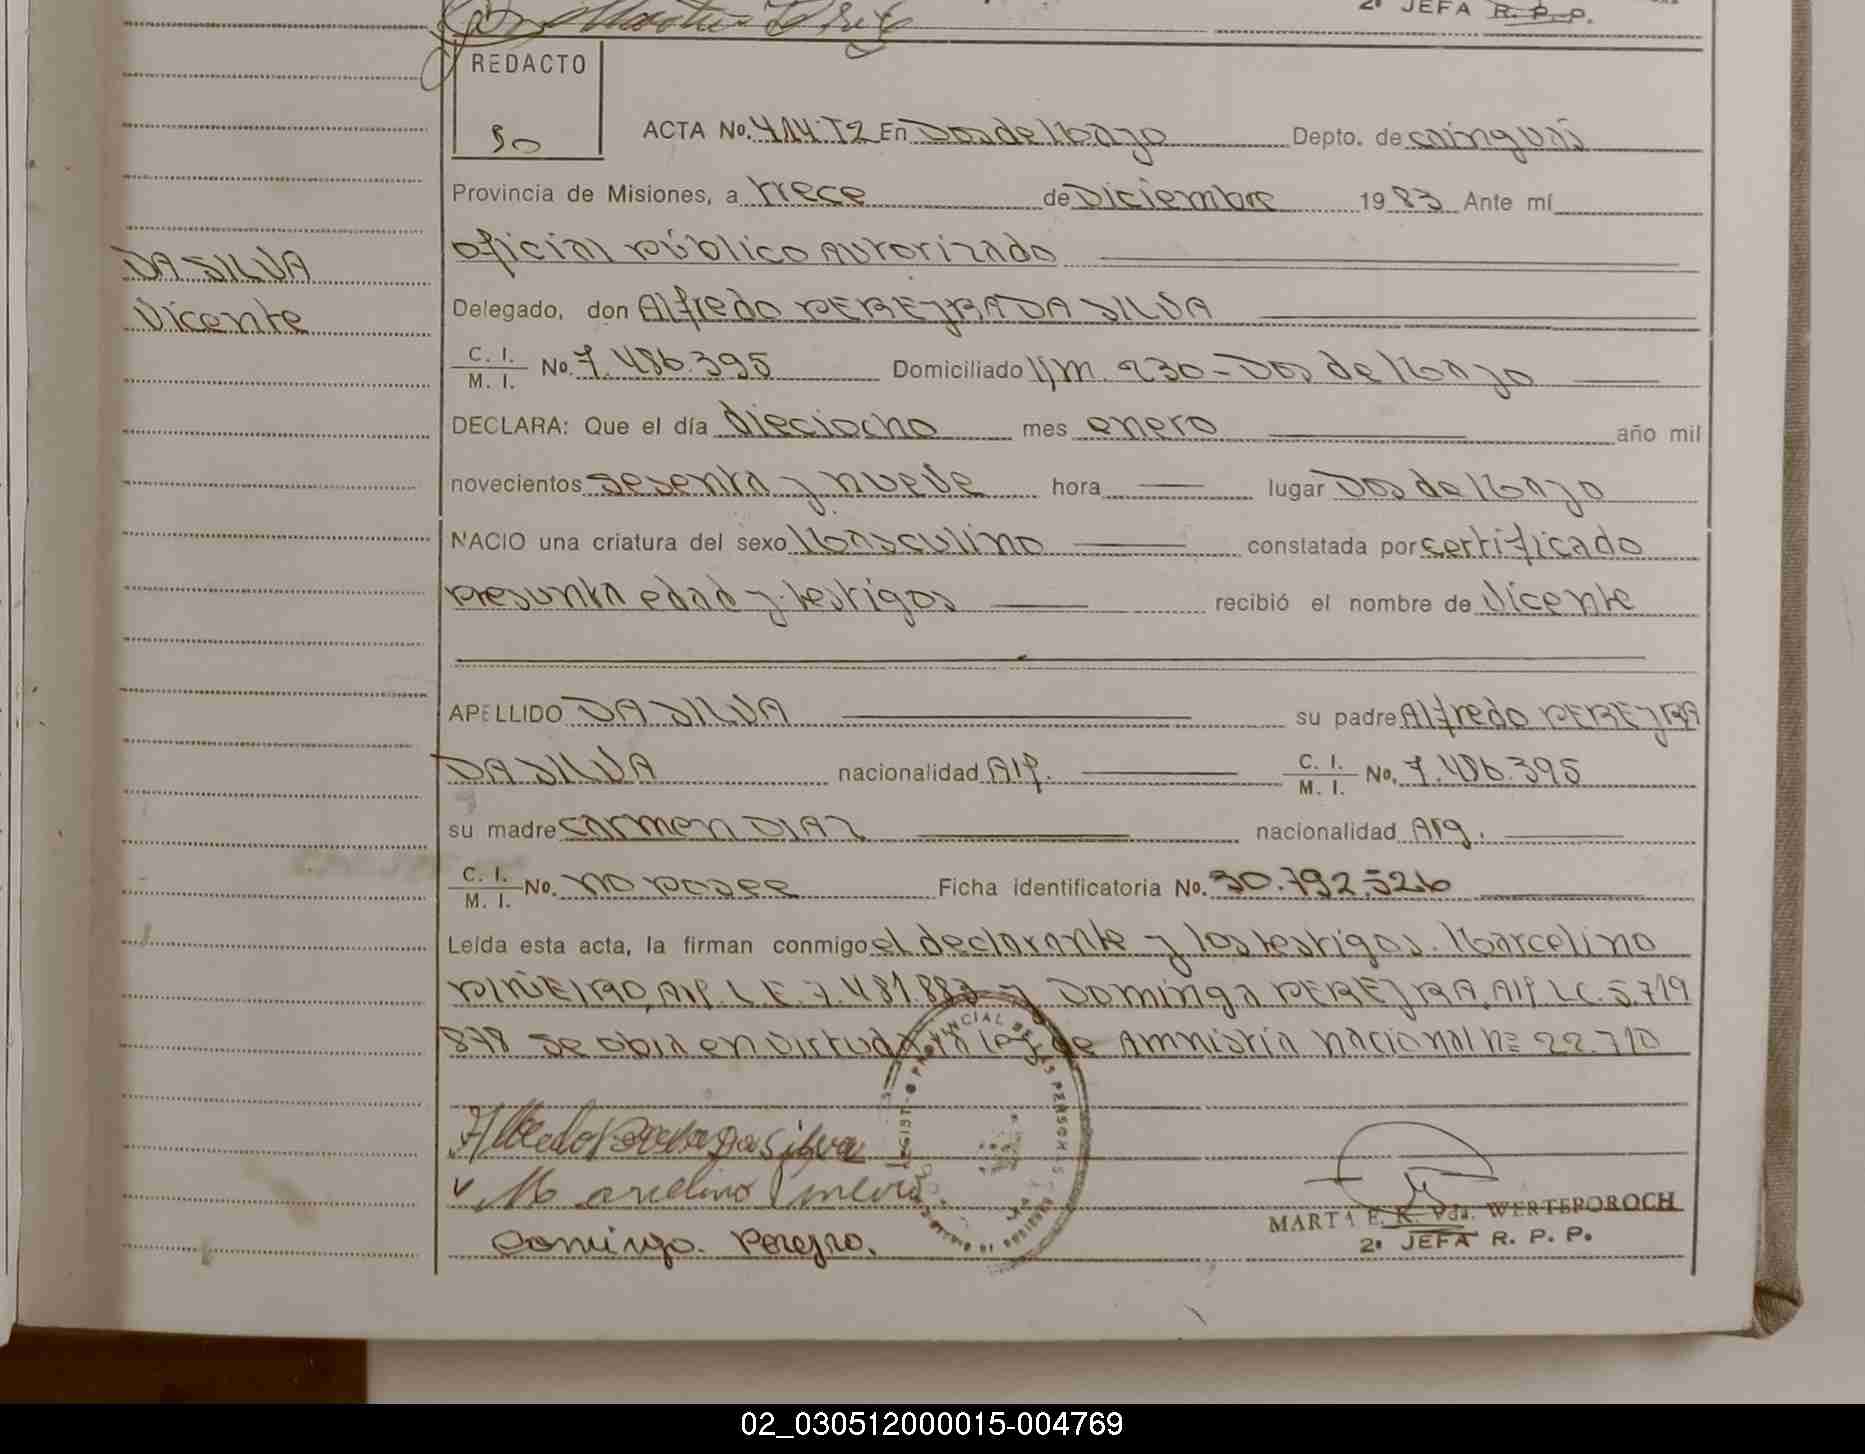 2ª JEFA R. P. P.
REDACTO
50
ACTA No. 414.T2 En Dos de Mayo Depto. de cainguás
Provincia de Misiones, a trece de Diciembre 1983 Ante mí
oficial público autorizado
DA SILVA
Vicente
Delegado, don Alfredo PEREYRA DA SILVA
C. I.
M. I. No. 7.486.395 Domiciliado Km. 230 - Dos de Mayo
DECLARA: Que el día dieciocho mes enero año mil
novecientos sesenta y nueve hora lugar Dos de Mayo
NACIO una criatura del sexo Masculino constatada por certificado
presunta edad y testigos recibió el nombre de Vicente
APELLIDO DA SILVA su padre Alfredo PEREYRA
DA SILVA nacionalidad Arg. C. I.
M. I. No. 7.486.395
su madre carmen DIAZ nacionalidad Arg.
C. I.
M. I. No. no posee Ficha identificatoria No. 30.792.526
Leída esta acta, la firman conmigo el declarante y los testigos. Marcelino
PIÑEIRO, Arg. L.E. 7.481.883 y Dominga PEREYRA, Arg L.C. 5.719
878 se obra en virtud la ley de Amnistía nacional nº 22.710
Marcelino
MARTA E. K. Vda. WERTEPOROCH
2ª JEFA R. P. P.
02_030512000015-004769